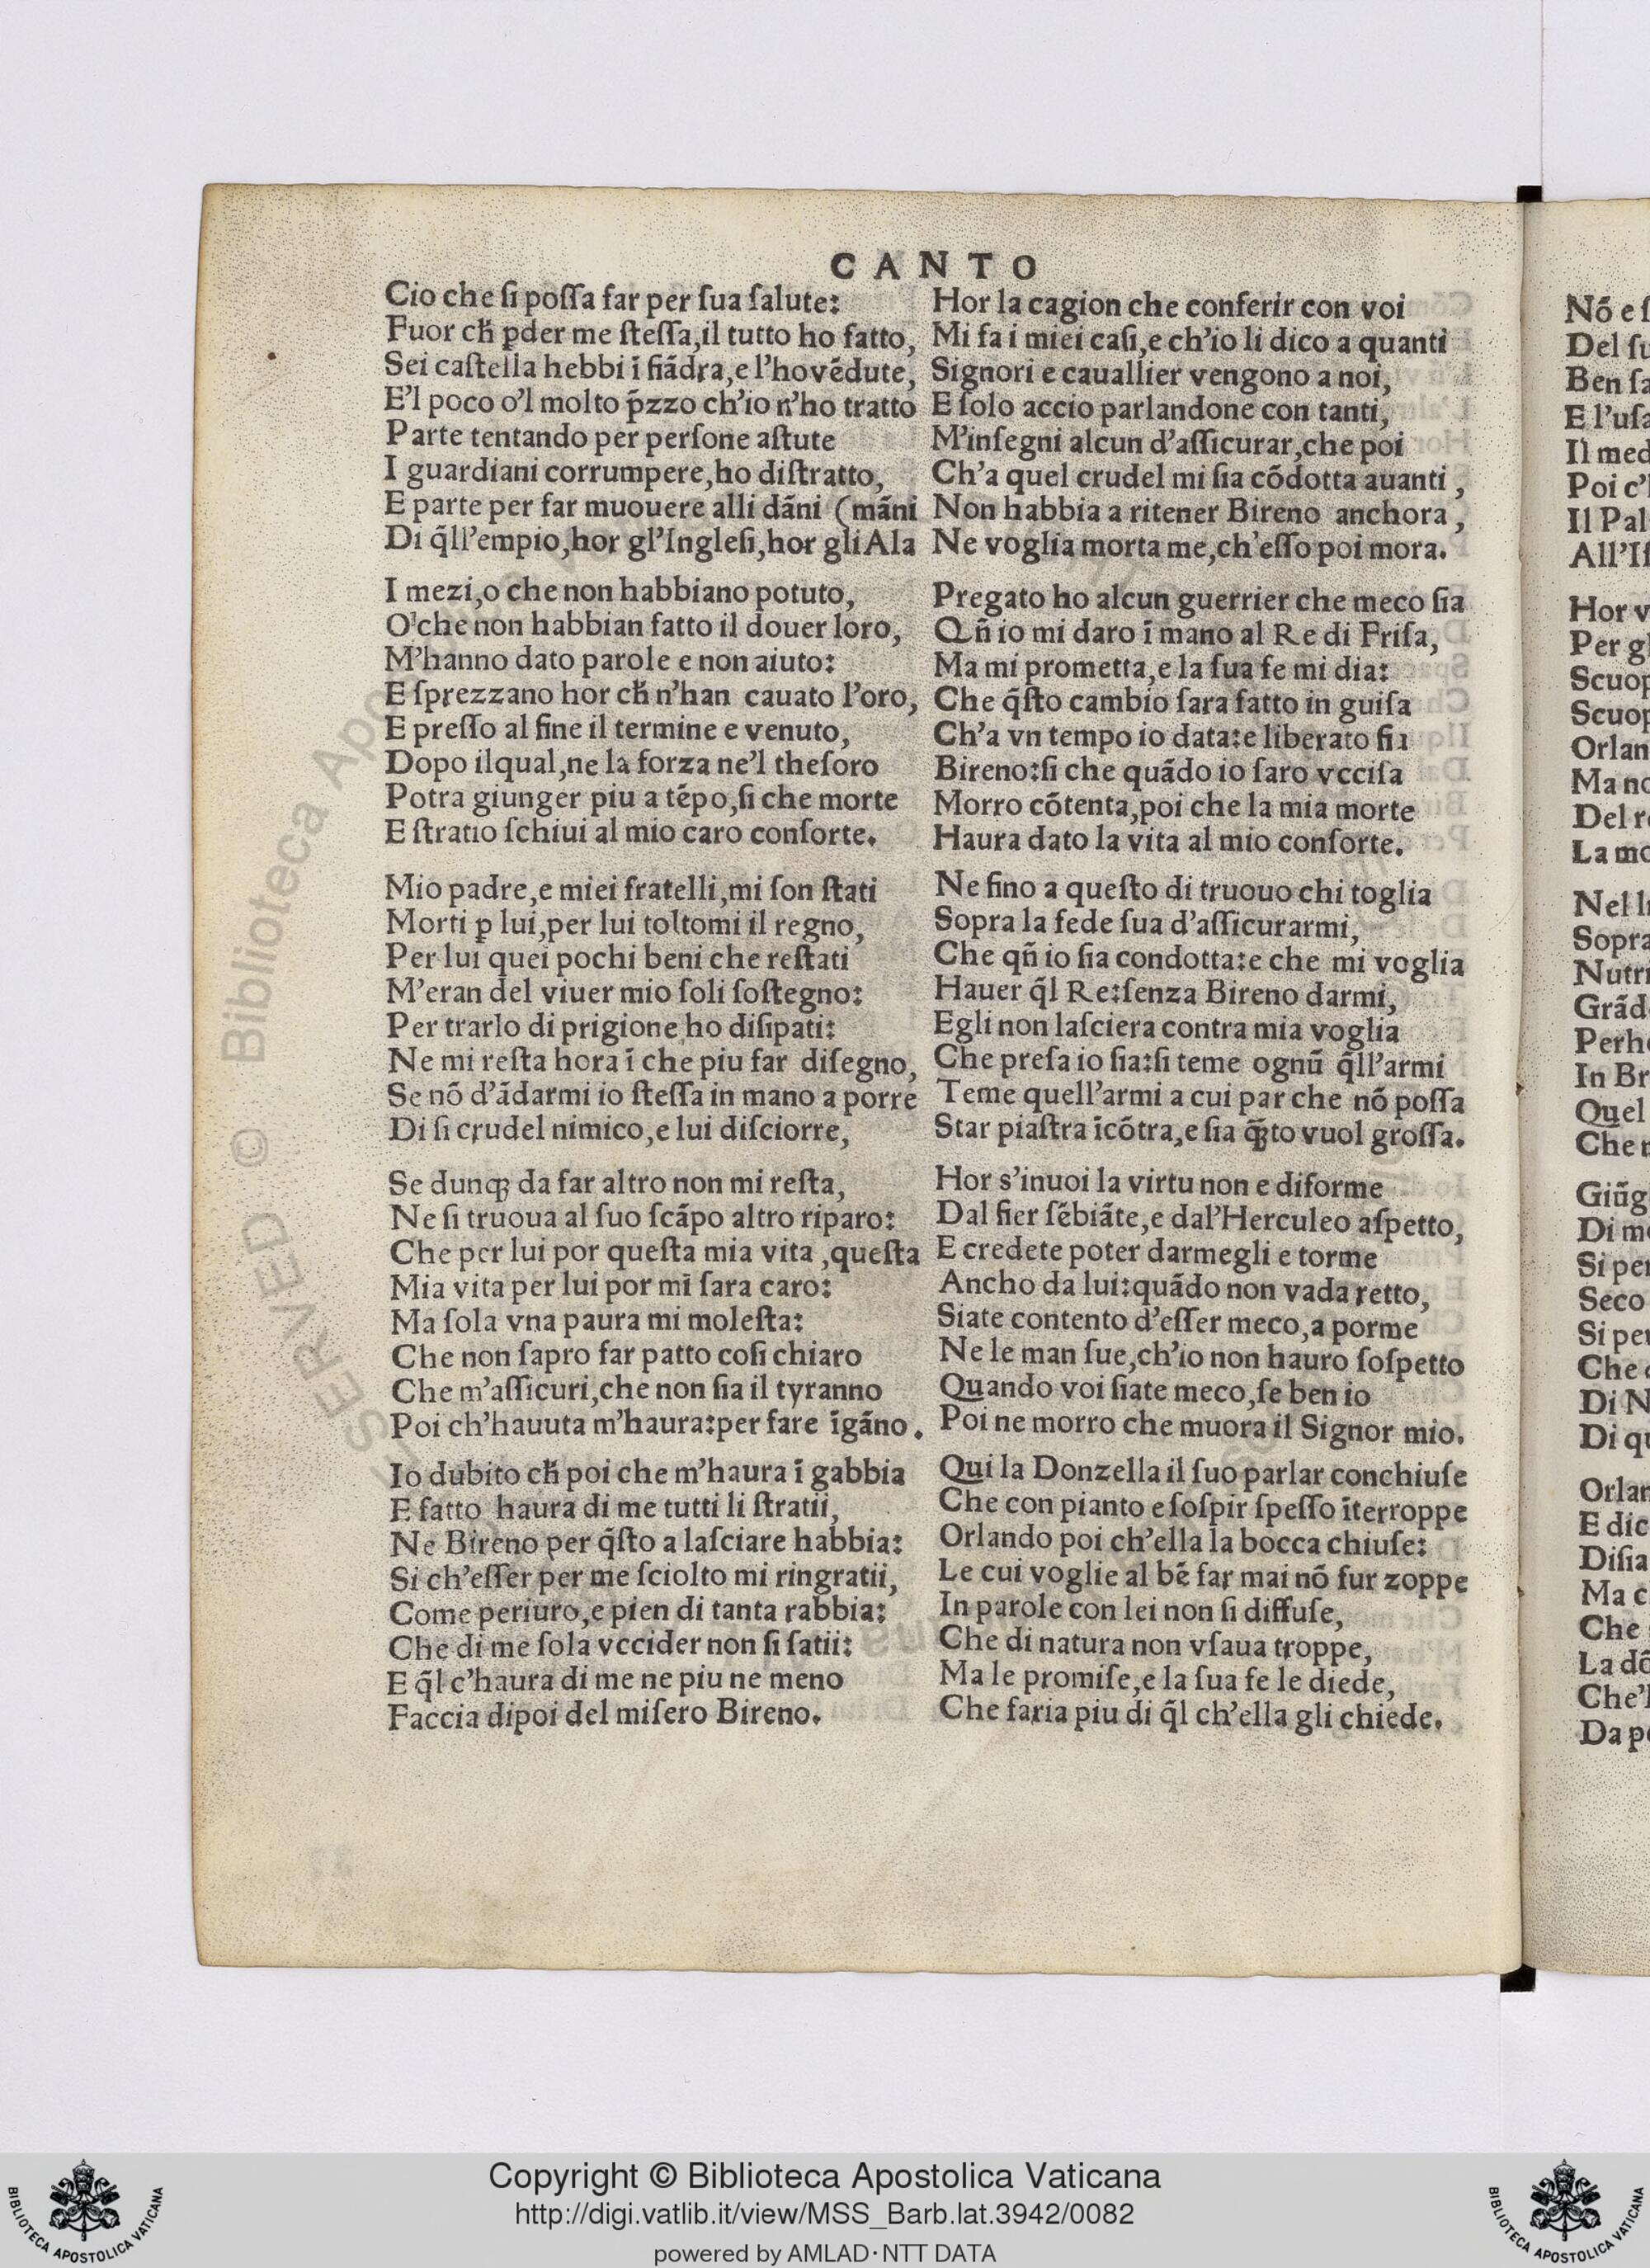 CANTO
Cio che ſi poſſa far per ſua ſalute:
Fuor ch̃ ꝑder me ſteſſa,il tutto ho fatto,
Sei caſtella hebbi ĩ fiãdra,e l'ho vẽdute,
E'l poco o'l molto p̃zzo ch'io n'ho tratto
Parte tentando per perſone aſtute
I guardiani corrumpere,ho diſtratto,
E parte per far muouere alli dãni (mãni
Di q̃ll'empio,hor gl'Ingleſi,hor gli Ala
I mezi,o che non habbiano potuto,
O'che non habbian fatto il douer loro,
M'hanno dato parole e non aiuto:
E ſprezzano hor ch̃ n'han cauato l'oro,
E preſſo al fine il termine e venuto,
Dopo ilqual,ne la forza ne'l theſoro
Potra giunger piu a tẽpo,ſi che morte
E ſtratio ſchiui al mio caro conſorte.
Mio padre,e miei fratelli,mi ſon ſtati
Morti ꝑ lui,per lui toltomi il regno,
Per lui quei pochi beni che reſtati
M'eran del viuer mio ſoli ſoſtegno:
Per trarlo di prigione ho diſipati:
Ne mi reſta hora ĩ che piu far diſegno,
Se nõ d'ãdarmi io ſteſſa in mano a porre
Di ſi crudel nimico,e lui diſciorre,
Se dunqꝫ da far altro non mi reſta,
Ne ſi truoua al ſuo ſcãpo altro riparo:
Che per lui por queſta mia vita ,queſta
Mia vita per lui por mi ſara caro:
Ma ſola vna paura mi moleſta:
Che non ſapro far patto coſi chiaro
Che m'aſſicuri,che non ſia il tyranno
Poi ch'hauuta m'haura:per fare ĩgãno.
Io dubito ch̃ poi che m'haura ĩ gabbia
E fatto haura di me tutti li ſtratii,
Ne Bireno per q̃ſto a laſciare habbia:
Si ch'eſſer per me ſciolto mi ringratii,
Come periuro,e pien di tanta rabbia:
Che di me ſola vccider non ſi ſatii:
E q̃l c'haura di me ne piu ne meno
Faccia dipoi del miſero Bireno.
Hor la cagion che conferir con voi
Mi fa i miei caſi,e ch'io li dico a quanti
Signori e cauallier vengono a noi,
E ſolo accio parlandone con tanti,
M'inſegni alcun d'aſſicurar,che poi
Ch'a quel crudel mi ſia cõdotta auanti ,
Non habbia a ritener Bireno anchora ,
Ne voglia morta me,ch'eſſo poi mora.
Pregato ho alcun guerrier che meco ſia
Qñ io mi daro ĩ mano al Re di Friſa,
Ma mi prometta,e la ſua fe mi dia:
Che q̃ſto cambio ſara fatto in guiſa
Ch'a vn tempo io data:e liberato fia
Bireno:ſi che quãdo io ſaro vcciſa
Morro cõtenta,poi che la mia morte
Haura dato la vita al mio conſorte.
Ne fino a queſto di truouo chi toglia
Sopra la fede ſua d'aſſicurarmi,
Che qñ io ſia condotta:e che mi voglia
Hauer q̃l Re:ſenza Bireno darmi,
Egli non laſciera contra mia voglia
Che preſa io ſia:ſi teme ognũ q̃ll'armi
Teme quell'armi a cui par che nõ poſſa
Star piaſtra ĩcõtra,e ſia q̃to vuol groſſa.
Hor s'inuoi la virtu non e diforme
Dal fier ſẽbiãte,e dal'Herculeo aſpetto,
E credete poter darmegli e torme
Ancho da lui:quãdo non vada retto,
Siate contento d'eſſer meco,a porme
Ne le man ſue,ch'io non hauro ſoſpetto
Quando voi ſiate meco,ſe ben io
Poi ne morro che muora il Signor mio.
Qui la Donzella il ſuo parlar conchiuſe
Che con pianto e ſoſpir ſpeſſo ĩterroppe
Orlando poi ch'ella la bocca chiuſe:
Le cui voglie al bẽ far mai nõ fur zoppe
In parole con lei non ſi diffuſe,
Che di natura non vſaua troppe,
Ma le promiſe,e la ſua fe le diede,
Che faria piu di q̃l ch'ella gli chiede.
Nõ e
Del
Ben
E l'uſa
Il med
Poi
Il Pal
All'
Hor
Per
Scuop
Scuop
Orlan
Ma
Del
La
Nel
Sopra
Nutri
Grãd
Perh
In Br
Quel
Che
Giũg
Di
Si per
Seco
Si per
Che
Di N
Di
Orlan
E dic
Diſia
Ma
Che
La
Che'l
Da
© Biblioteca Apo
SERVED
Copyright © Biblioteca Apostolica Vaticana
http://digi.vatlib.it/view/MSS_Barb.lat.3942/0082
powered by AMLAD·NTT DATA
BIBLIOTECA APOSTOLICA VATICANA
BIBLIOTECA APOSTOLICA VATICANA